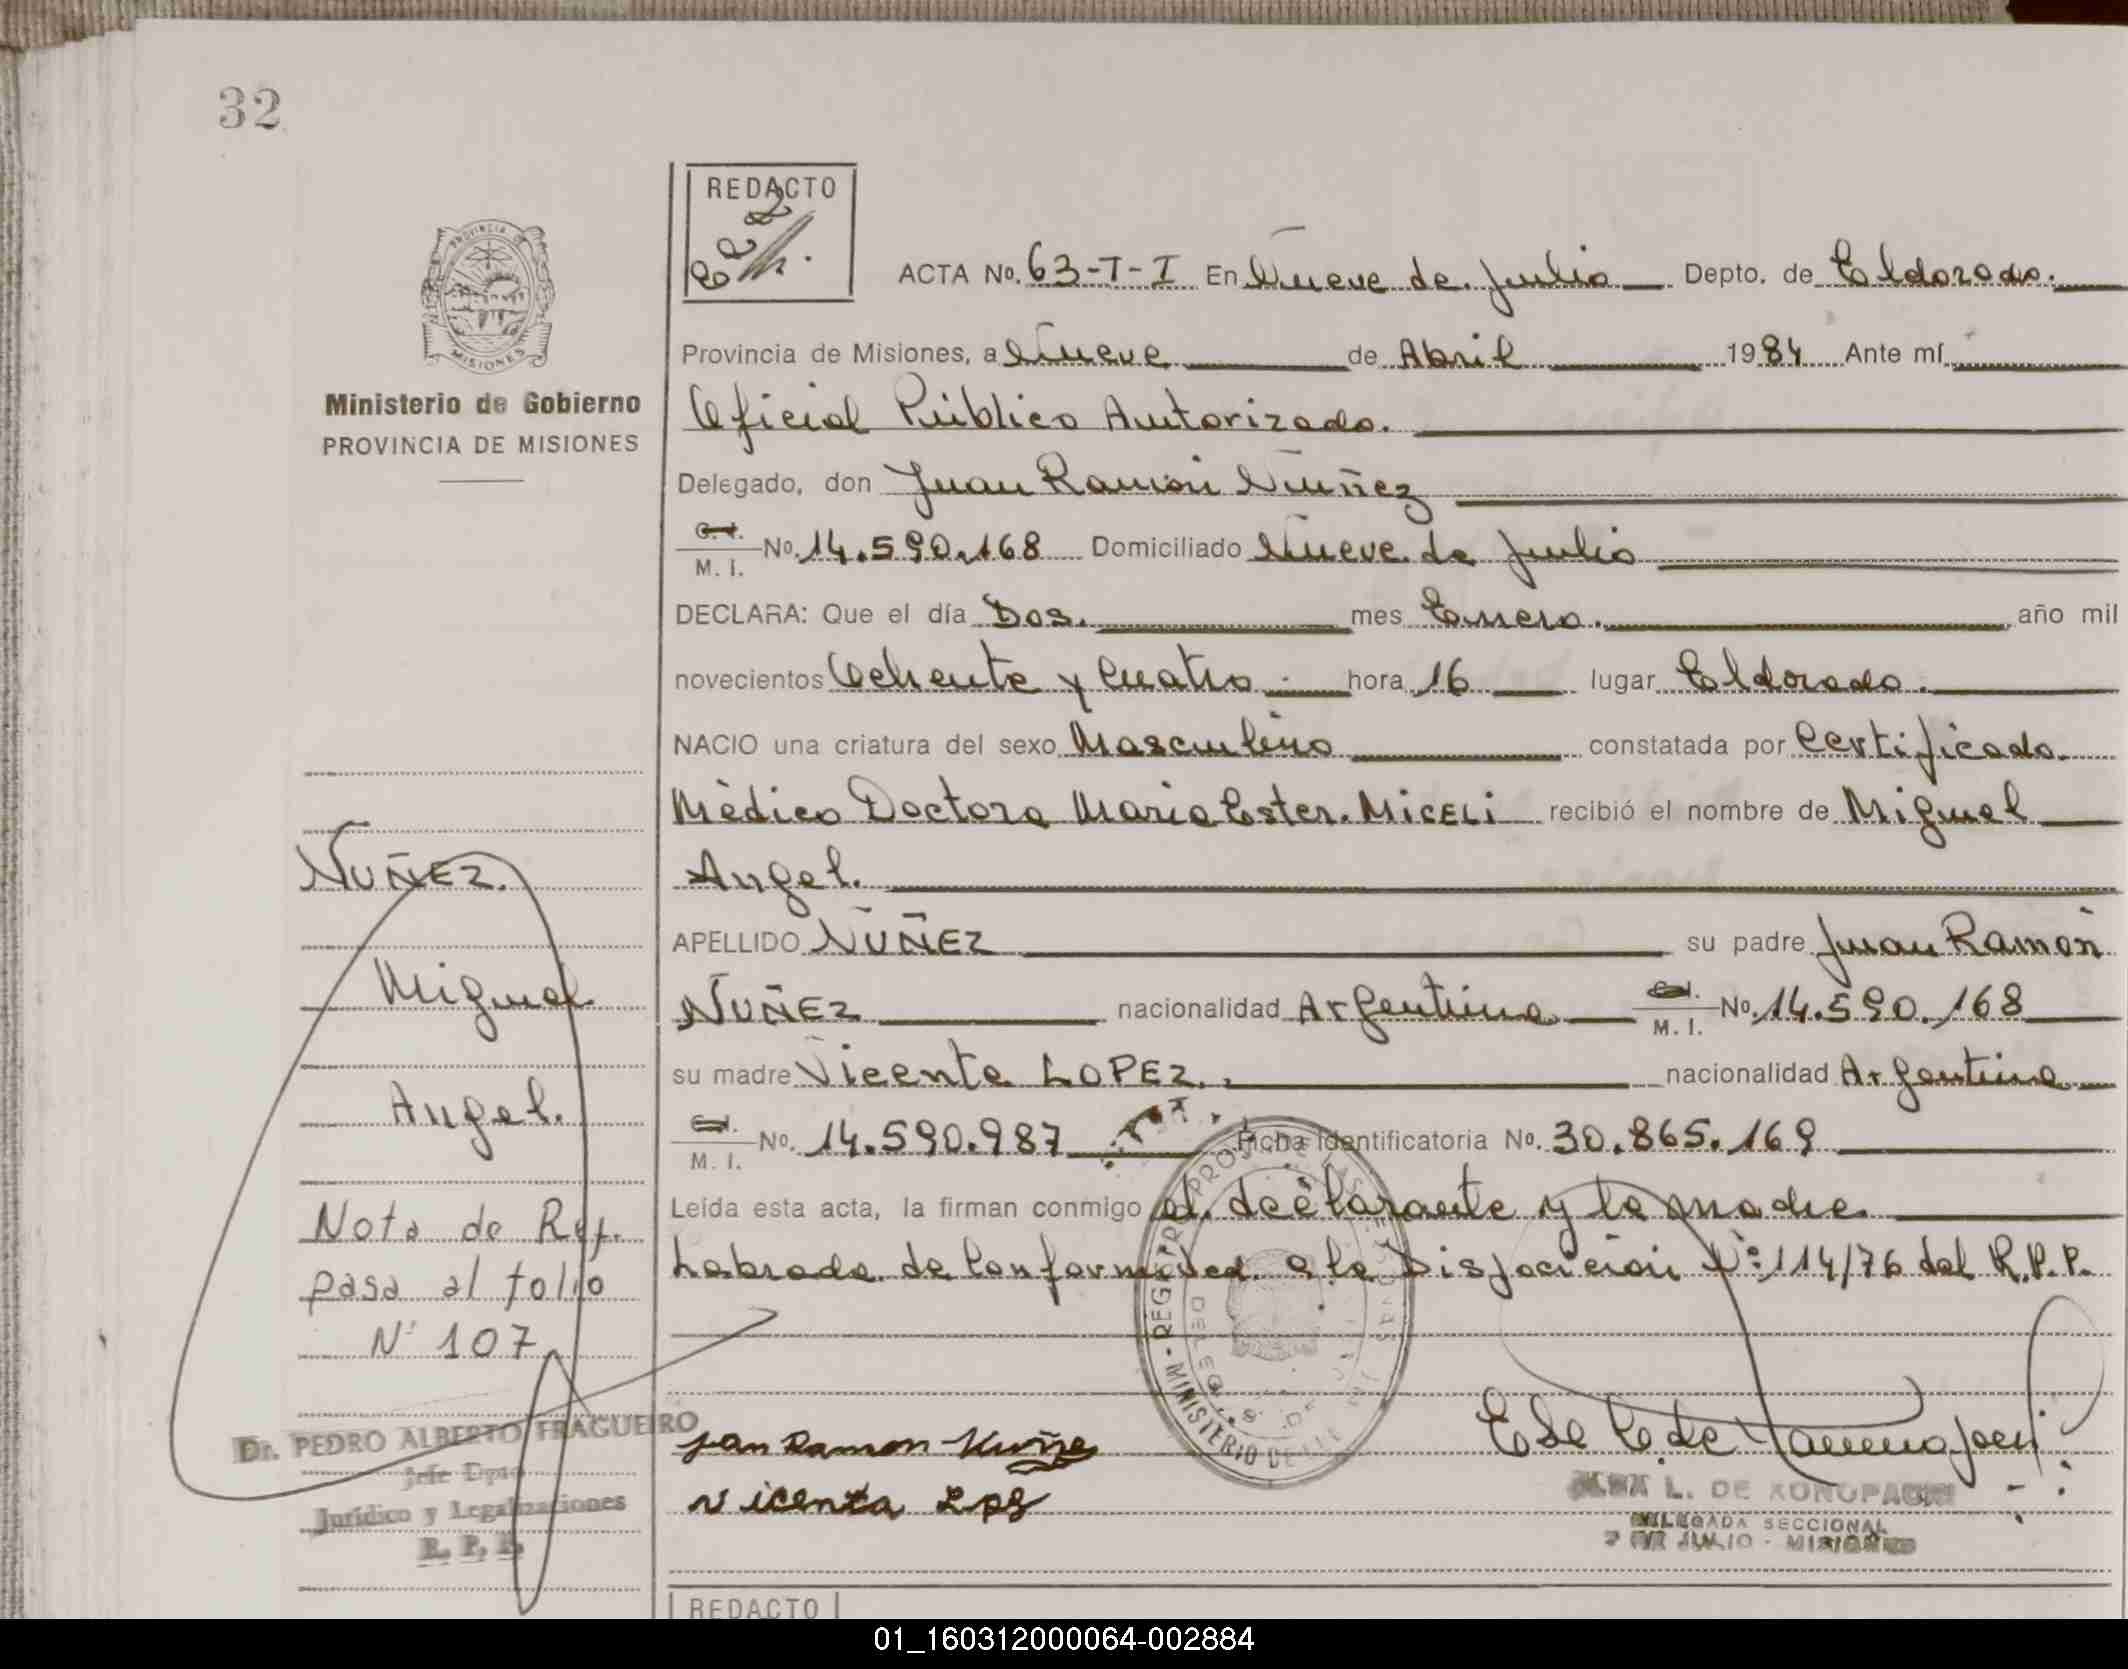 32
REDACTO
ACTA No. 63-T-I En Nueve de Julio Depto. de Eldorado.
PROVINCIA DE
MISIONES
Ministerio de Gobierno
PROVINCIA DE MISIONES
Provincia de Misiones, a Nueve de Abril 1984 Ante mí
Oficial Público Autorizado.
Delegado, don Juan Ramón Núñez
C. I.
M. I. No. 14.590.168 Domiciliado Nueve de Julio
DECLARA: Que el día Dos. mes Enero. año mil
novecientos Ochenta y Cuatro hora 16 lugar Eldorado.
NACIO una criatura del sexo Masculino constatada por Certificado
Mèdico Doctora Maria Ester. MICELI recibió el nombre de Miguel
Angel.
APELLIDO NUÑEZ su padre Juan Ramón
NUÑEZ nacionalidad Argentina C.I.
M. I. No. 14.590.168
su madre Vicenta LOPEZ. nacionalidad Argentina
C.I.
M. I. No. 14.590.987 Ficha identificatoria No. 30.865.169
Leída esta acta, la firman conmigo el declarante y la madre.
Labrada de Conformidad a la Disposición Nº 114/76 del R.P.P.
NUÑEZ.
Miguel
Angel.
Nota de Ref.
pasa al folio
Nº 107
Dr. PEDRO ALBERTO FRAGUEIRO
Jefe Dpto
Jurídico y Legalizaciones
R. P. P.
REGISTRO PROV. DE LAS PERSONAS
MINISTERIO DE
Juan Ramon Nuñe
Vicenta Lps
L. DE KONOPACKI
DELEGADA SECCIONAL
9 DE JULIO - MISIONES
REDACTO
01_160312000064-002884